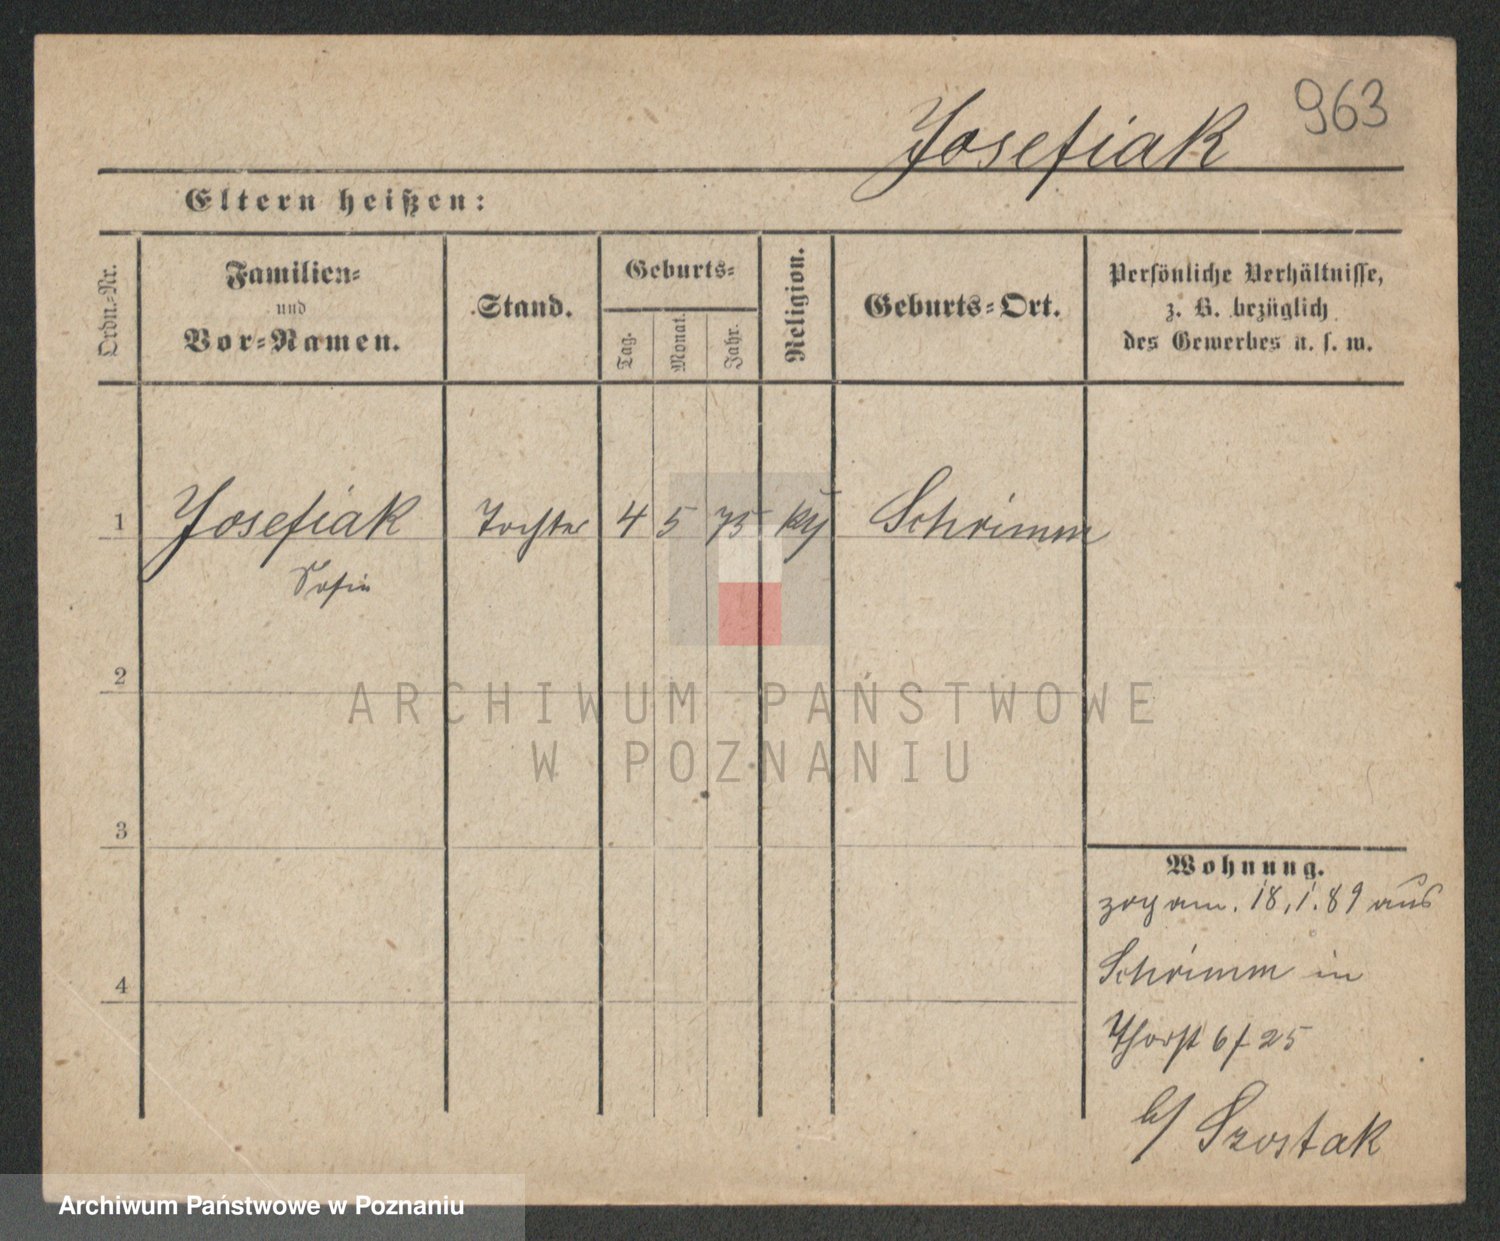 963
Josefiak
Eltern heißen:
Ordn.-Nr.
Familien-
und
Vor-Namen.
Stand.
Geburts-
Tag.
Monat.
Jahr.
Religion.
Geburts-Ort.
Persönliche Verhältnisse,
z. B. bezüglich
des Gewerbes u. s. w.
1 Josefiak Tochter 4 5 75 Schrimm
Sofie
2
3
4
Wohnung.
zog am. 18,1.89 aus
Schrimm in
6/25
b/ Szostak
ARCHIWUM PAŃSTWOWE
W POZNANIU
Archiwum Państwowe w Poznaniu